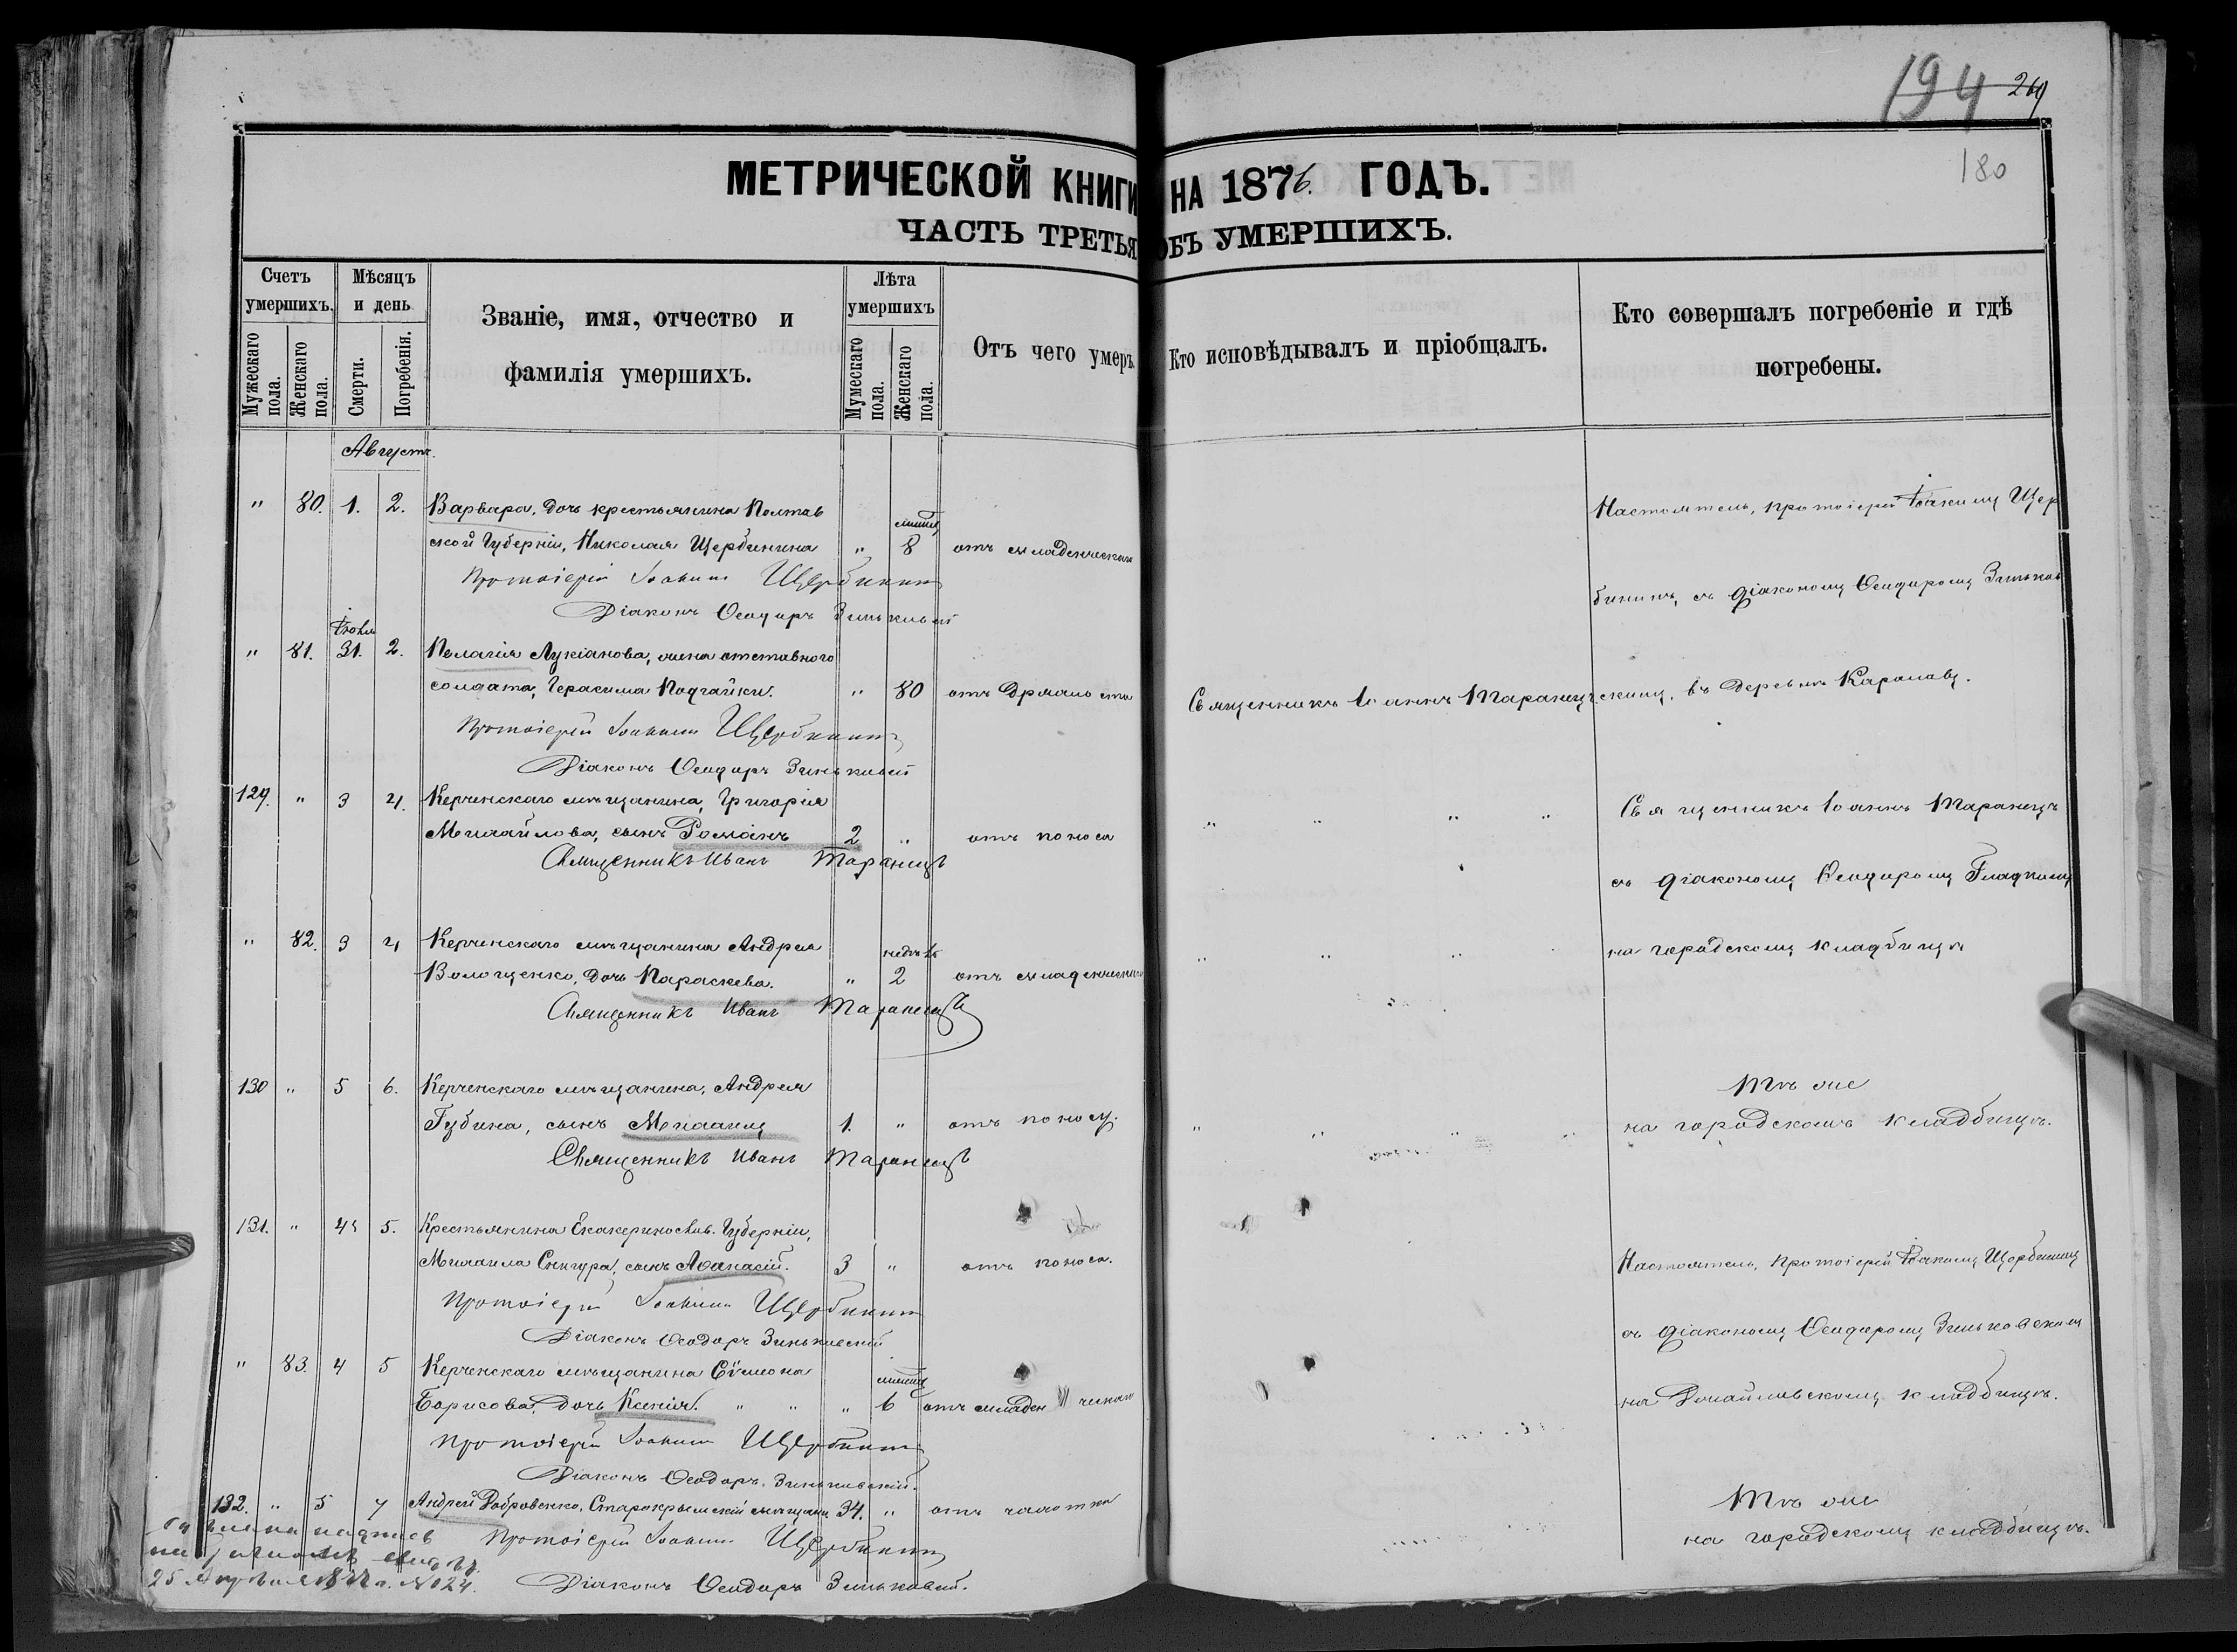 194 269
180
МЕТРИЧЕСКОЙ КНИГИ НА 1876. ГОДЪ.
ЧАСТЬ ТРЕТЬЯ ОБЪ УМЕРШИХЪ.
Счетъ умершихъ.
Мужескаго пола.
Женскаго пола.
Мѣсяцъ и день
Смерти.
Погребенія.
Званіе, имя, отчество и
фамилія умершихъ.
Лѣта умершихъ
Мумескаго пола.
Женскаго пола.
Отъ чего умеръ.
Кто исповѣдывалъ и пріобщалъ.
Кто совершалъ погребеніе и гдѣ
погребены.
Августъ.
" 80. 1. 2. Варвара, дочь крестьянина Полтав
Настоятель, протоіерей Іоакимъ Щер
ской Губерніи, Николая Щербинина " 8 отъ младенческой
Протоіерей Іоакимъ Щербининъ
бининъ, съ діакономъ Ѳеодоромъ Зиньков
Діаконъ Ѳеодоръ Зиньковскій
Іюля
" 81. 31. 2. Пелагія Лукіанова, жена отставного
солдата, Герасима Подгайки. " 80 отъ дряхлости Священникъ Іоаннъ Таранецъ скимъ, въ деревнѣ
Протоіерей Іоакимъ Щербининъ
Діаконъ Ѳеодоръ Зиньковскій
129. " 3 4. Керченскаго мѣщанина, Григорія
Священникъ Іоаннъ Таранецъ
Михайлова, сынъ Романъ 2 " отъ поноса " " " "
Священникъ Иванъ Таранецъ
съ діакономъ Ѳеодоромъ Гладкимъ
" 82. 3 4 Керченскаго мѣщанина Андрея недѣль
на городскомъ кладбищѣ
Волощенко, дочь Параскева. " 2 отъ младенческой " " "
Священникъ Иванъ Таранецъ
130 " 5 6. Керченскаго мѣщанина, Андрея
Тѣ же
Губина, сынъ Михаилъ 1. " отъ поносу. " " " "
на городскомъ кладбищѣ.
Священникъ Иванъ Таранецъ
131. " 4 5. Крестьянина Екатеринослав. Губерніи,
Михаила Снигура, сынъ Аѳанасій. 3 " отъ поноса.
Настоятель, Протоіерей Іоакимъ Щербининъ
Протоіерей Іоакимъ Щербининъ
Діаконъ Ѳеодоръ Зиньковскій
съ діакономъ Ѳеодоромъ Зиньковскимъ
" 83. 4 5 Керченскаго мѣщанина Сѵмеона
Борисова, дочь Ксенія. " " " 6 отъ младенческой
на кладбищѣ.
Протоіерей Іоакимъ Щербининъ
Діаконъ Ѳеодоръ Зиньковскій.
132. " 5 7 Андрей Бобровенко, Старокрымскій мѣщанинъ 34. " отъ чахотки
Тѣ же
Протоіерей Іоакимъ Щербининъ
на городскомъ кладбищѣ.
Діаконъ Ѳеодоръ Зиньковскій.
25 №24.